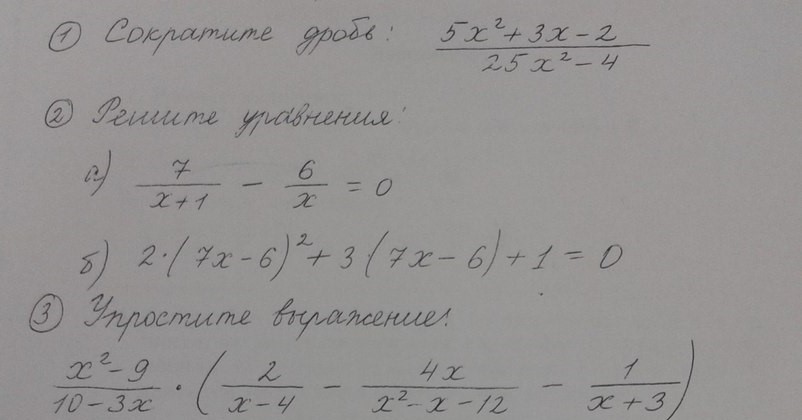 ① Сократите дробь: (5x²+3x-2)/(25x²-4)
② Решите уравнения:
а) 7/(x+1) - 6/x = 0
б) 2·(7x-6)²+3(7x-6)+1=0
③ Упростите выражение:
(x²-9)/(10-3x) · (2/(x-4) - 4x/(x²-x-12) - 1/(x+3))